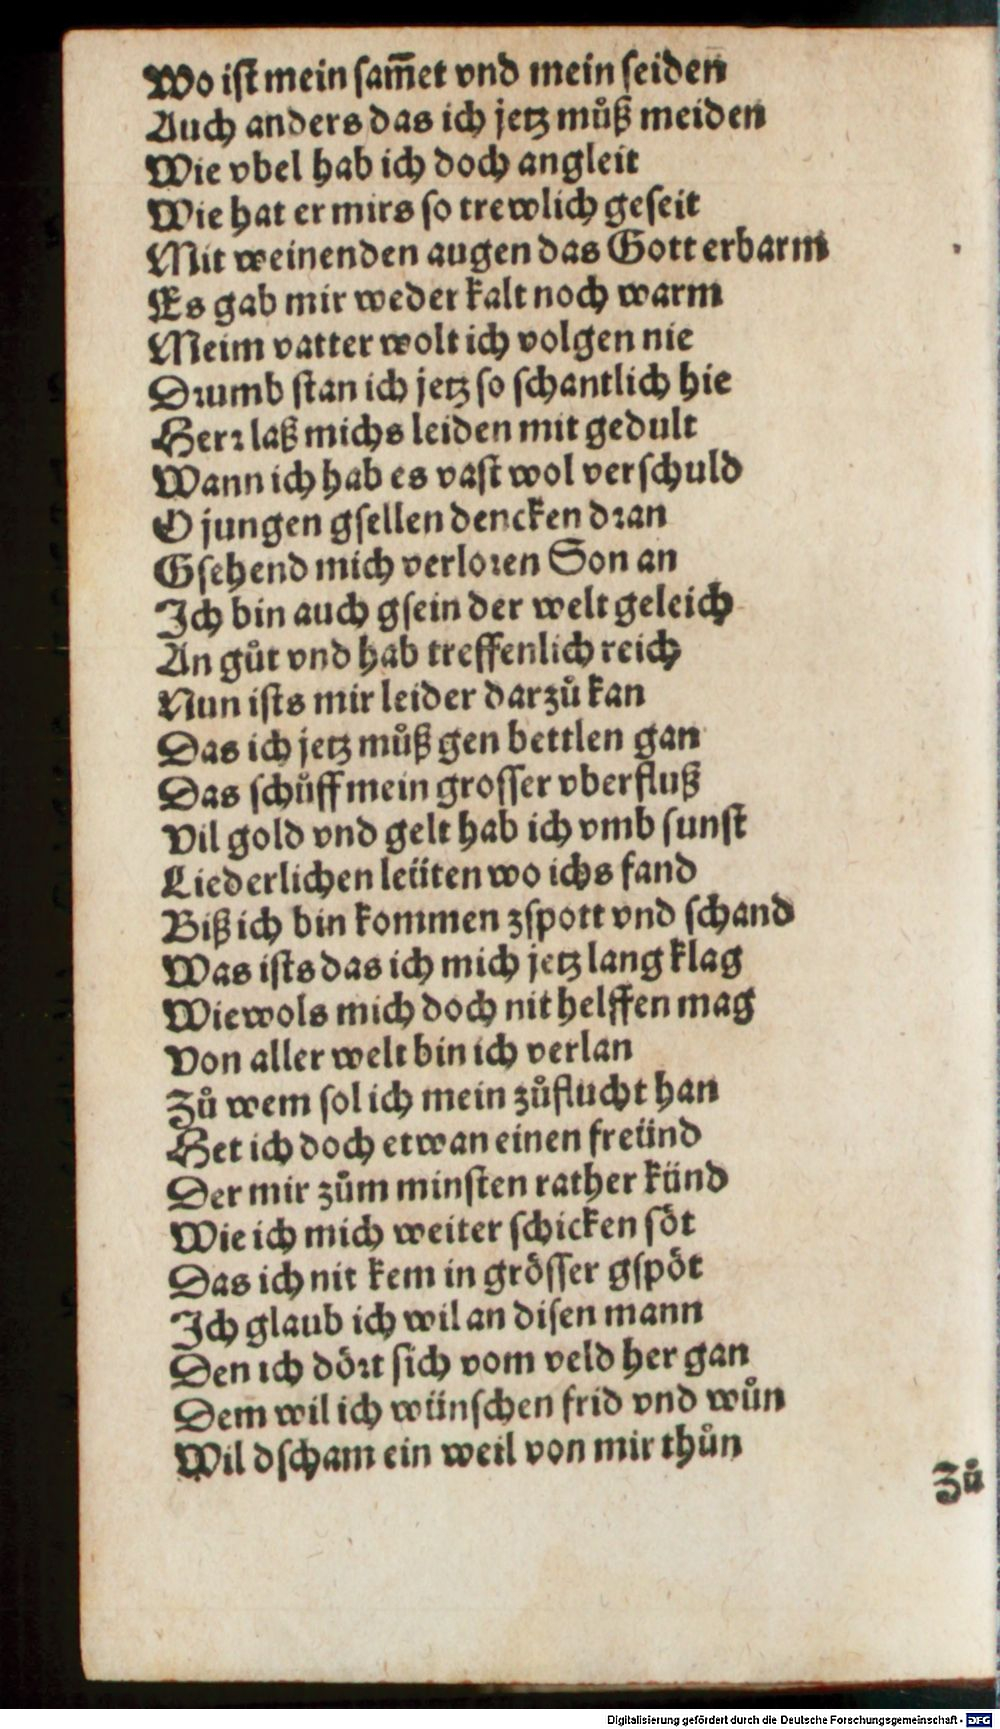 Wo iſt mein ſam̅et vnd mein ſeiden
Auch anders das ich jetz můß meiden
Wie vbel hab ich doch angleit
Wie hat er mirs ſo trewlich geſeit
Mit weinenden augen das Gott erbarm
Es gab mir weder kalt noch warm
Meim vatter wolt ich volgen nie
Dꝛumb ſtan ich jetz ſo ſchantlich hie
Herꝛ laß michs leiden mit gedult
Wann ich hab es vaſt wol verſchuld
O jungen gſellen dencken dꝛan
Gſehend mich verloꝛen Son an
Ich bin auch gſein der welt geleich
An gůt vnd hab treffenlich reich
Nun iſts mir leider darzů kan
Das ich jetz můß gen bettlen gan
Das ſchůff mein groſſer vberfluß
Vil gold vnd gelt hab ich vmb ſunſt
Liederlichen leüten wo ichs fand
Biß ich bin kommen zſpott vnd ſchand
Was iſts das ich mich jetz lang klag
Wiewols mich doch nit helffen mag
Von aller welt bin ich verlan
Zů wem ſol ich mein zůflucht han
Het ich doch etwan einen freünd
Der mir zům minſten rather künd
Wie ich mich weiter ſchicken ſöt
Das ich nit kem in gröſſer gſpöt
Ich glaub ich wil an diſen mann
Den ich döꝛt ſich vom veld her gan
Dem wil ich wünſchen frid vnd wůn
Wil dſcham ein weil von mir thůn
Zů
Digitalisierung gefördert durch die Deutsche Forschungsgemeinschaft - DFG